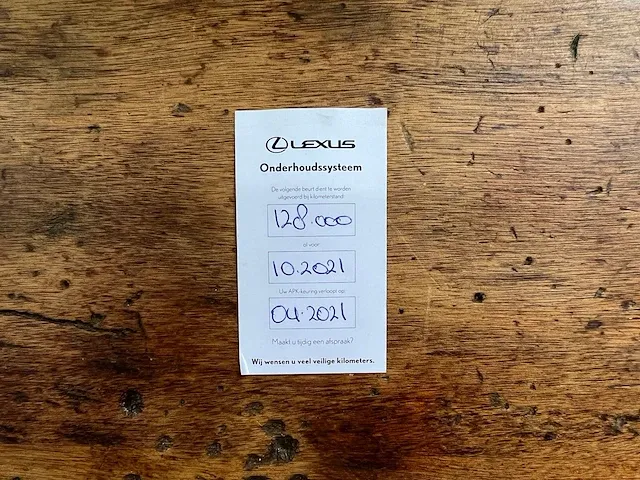 LEXUS
Onderhoudssysteem
De volgende beurt dient te worden
uitgevoerd bij kilometerstand
128.000
of voor:
10.2021
Uw APK-keuring verloopt op:
04.2021
Maakt u tijdig een afspraak?
Wij wensen u veel veilige kilometers.